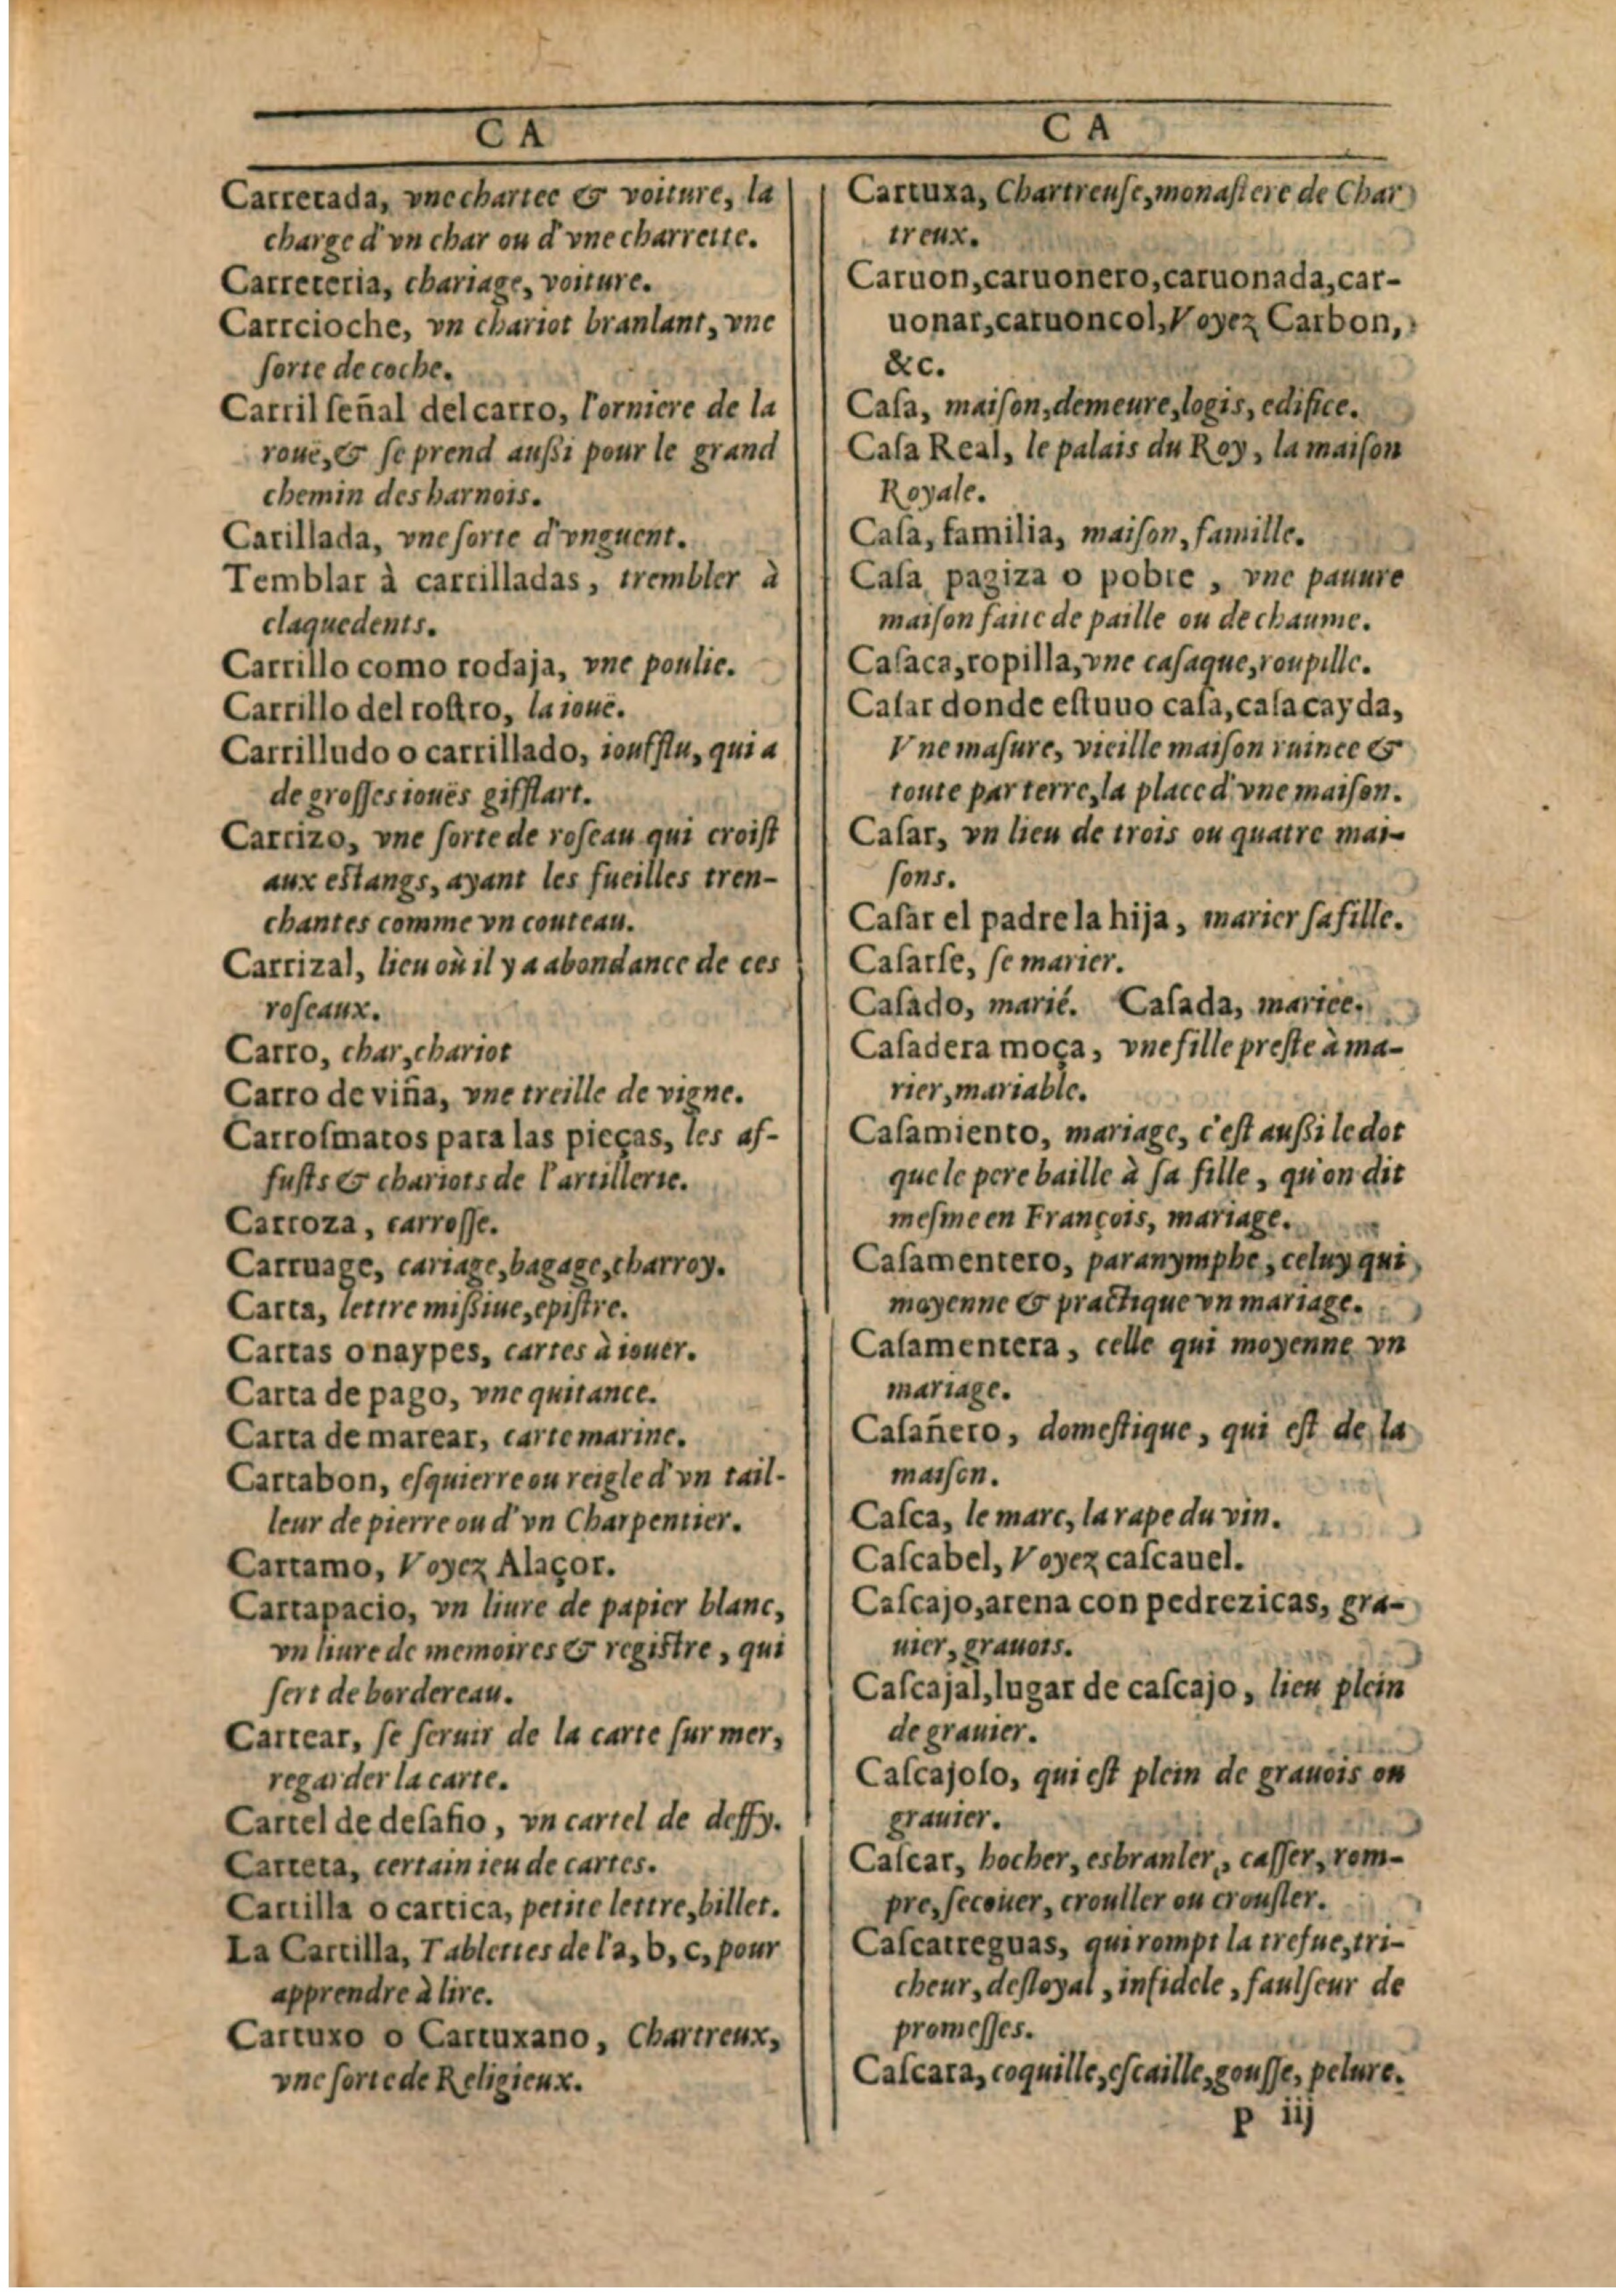 C A
Carretada, vne chartee & voiture, la
charge d'vn char ou d'vne charrette.
Carreteria, chariage, voiture.
Carrcioche, vn chariot branlant, vne
ſorte de coche.
Carril ſeñal del carro, l'orniere de la
rouë, & ſe prend auſſi pour le grand
chemin des harnois.
Carillada, vne ſorte d'vnguent.
Temblar à carrilladas, trembler à
claquedents.
Carrillo como rodaja, vne poulie.
Carrillo del roſtro, la iouë.
Carrilludo o carrillado, ioufflu, qui a
de groſſes iouës gifflart.
Carrizo, vne ſorte de roſeau qui croiſt
aux eſtangs, ayant les fueilles tren-
chantes comme vn couteau.
Carrizal, lieu où il y a abondance de ces
roſeaux.
Carro, char, chariot
Carro de viña, vne treille de vigne.
Carroſmatos para las pieças, les af-
fuſts & chariots de l'artillerie.
Carroza, carroſſe.
Carruage, cariage, bagage, charroy.
Carta, lettre miſſiue, epiſtre.
Cartas o naypes, cartes à iouer.
Carta de pago, vne quitance.
Carta de marear, carte marine.
Cartabon, eſquierre ou reigle d'vn tail-
leur de pierre ou d'vn Charpentier.
Cartamo, Voyez Alaçor.
Cartapacio, vn liure de papier blanc,
vn liure de memoires & regiſtre, qui
ſert de bordereau.
Cartear, ſe ſeruir de la carte ſur mer,
regarder la carte.
Cartel de deſafio, vn cartel de deffy.
Carteta, certain ieu de cartes.
Cartilla o cartica, petite lettre, billet.
La Cartilla, Tablettes de l'a, b, c, pour
apprendre à lire.
Cartuxo o Cartuxano, Chartreux,
vne ſorte de Religieux.
C A
Cartuxa, Chartreuſe, monaſtere de Char
treux.
Caruon, caruonero, caruonada, car-
uonar, caruoncol, Voyez Carbon,
&c.
Caſa, maiſon, demeure, logis, edifice.
Caſa Real, le palais du Roy, la maiſon
Royale.
Caſa, familia, maiſon, famille.
Caſa pagiza o pobre, vne pauure
maiſon faite de paille ou de chaume.
Caſaca, ropilla, vne caſaque, roupille.
Caſar donde eſtuuo caſa, caſa cayda,
Vne maſure, vieille maiſon ruinee &
toute par terre, la place d'vne maiſon.
Caſar, vn lieu de trois ou quatre mai-
ſons.
Caſar el padre la hija, marier ſa fille.
Caſarſe, ſe marier.
Caſado, marié. Caſada, mariee.
Caſadera moça, vne fille preſte à ma-
rier, mariable.
Caſamiento, mariage, c'eſt auſſi le dot
que le pere baille à ſa fille, qu'on dit
meſme en François, mariage.
Caſamentero, paranymphe, celuy qui
moyenne & practique vn mariage.
Caſamentera, celle qui moyenne vn
mariage.
Caſañero, domeſtique, qui eſt de la
maiſon.
Caſca, le marc, la rape du vin.
Caſcabel, Voyez caſcauel.
Caſcajo, arena con pedrezicas, gra-
uier, grauois.
Caſcajal, lugar de caſcajo, lieu plein
de grauier.
Caſcajoſo, qui eſt plein de grauois ou
grauier.
Caſcar, hocher, esbranler, caſſer, rom-
pre, ſecoüer, crouller ou crouſler.
Caſcatreguas, qui rompt la trefue, tri-
cheur, deſloyal, infidele, faulſeur de
promeſſes.
Caſcara, coquille, eſcaille, gouſſe, pelure.
p iij